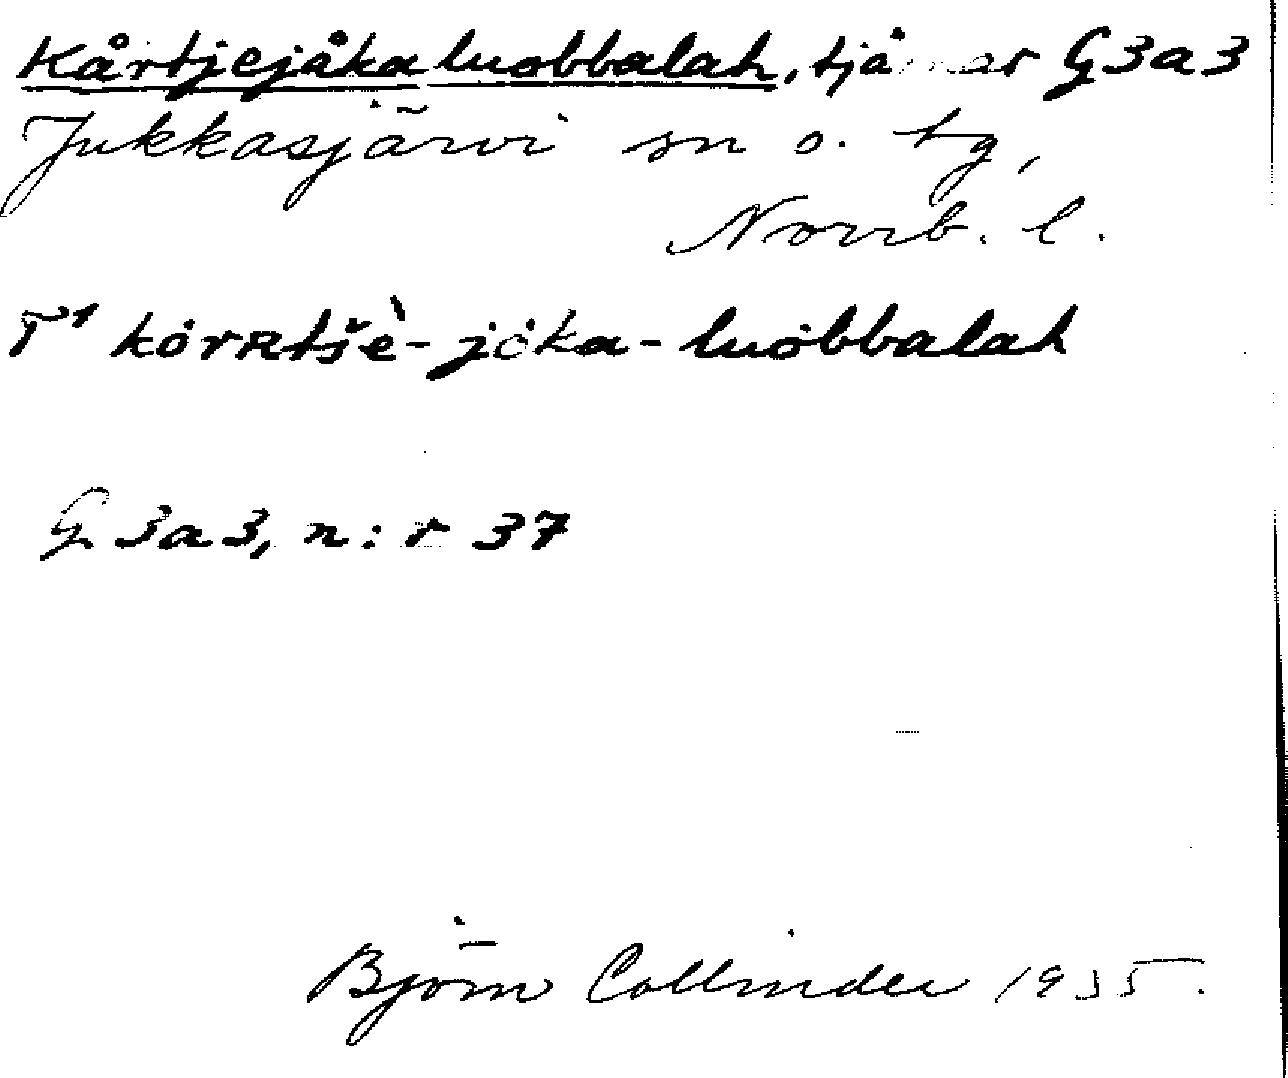 Kårtjejåkaluobbalah, tjårnar G3a3
Jukkasjärvi sn o. tg,
Norrb. l.
T¹ kȯrʀtšè- jȯka- luȯbbalah
G 3a3, n:r 37
Björn Collinder 1935.